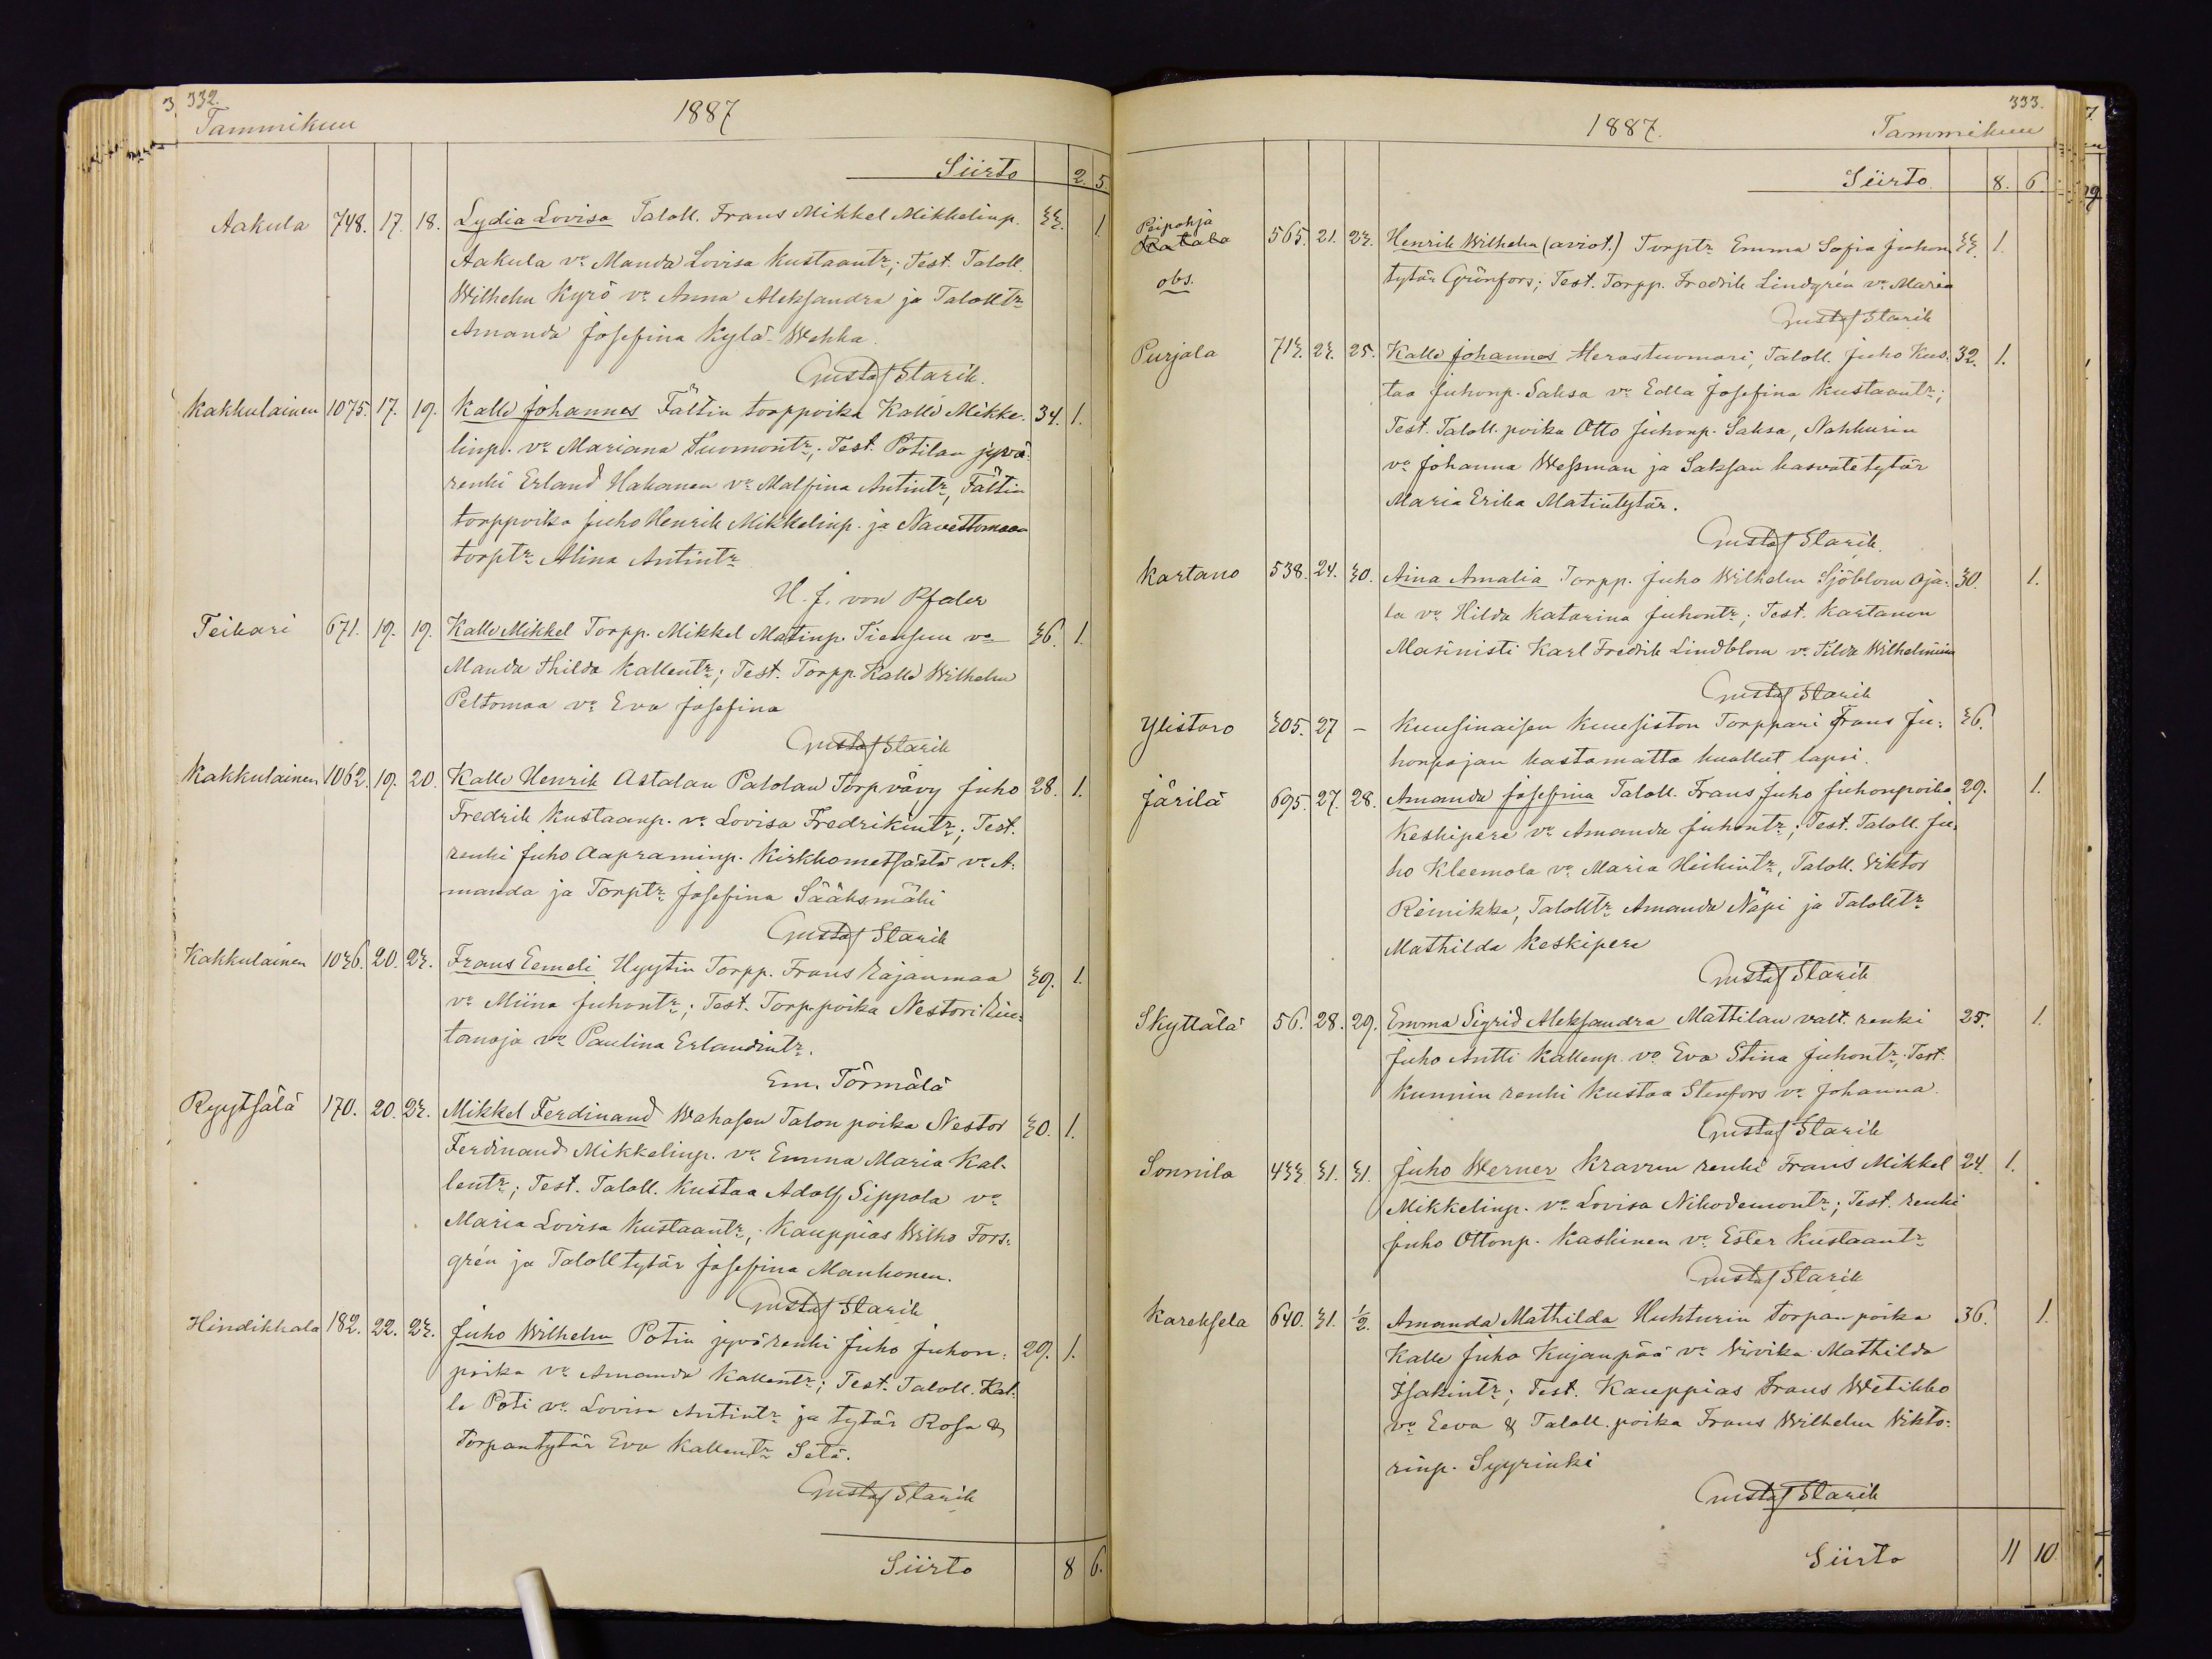 332.
Tammikuu 1887
Siirto 2. 5.
Aakula 748. 17. 18. Lydia Lovisa Taloll. Frans Mikkel Mikkelinp. 33. 1.
Aakula vo Manda Lovisa Kustaantr; Test. Taloll.
Wilhelm Kyrö vo Anna Aleksandra ja Talolltr
Amanda Josefina Kylä-Wahka.
Gustaf Starik.
Kakkulainen 1075. 17. 19. Kalle Johannes Fältin torppoika Kalle Mikke- 34. 1.
linp. vo Mariana Tuomontr; Test. Potilan jyvä-
renki Erland Hakanen vo Malfina Antintr, Fältin
torppoika Juho Henrik Mikkelinp. ja Navettomaan
torptr Alina Antintr
H. J. von Pfaler
Teikari 671. 19. 19. Kalle Mikkel Torpp. Mikkel Matinp. Tiensuu vo 36. 1.
Manda Thilda Kallentr; Test. Torpp. Kalle Wilhelm
Peltomaa vo Eva Josefina
Gustaf Starik
Kakkulainen 1062. 19. 20. Kalle Henrik Astalan Palolan Torpvävy Juho 28. 1.
Fredrik Kustaanp. vo Lovisa Fredrikintr; Test.
renki Juho Aapraminp. Kirkkometsästä vo A-
manda ja Torptr Josefina Sääksmäki
Gustaf Starik
Kakkulainen 1036. 20. 23. Frans Eemeli Hyytin Torpp. Frans Rajanmaa 39. 1.
vo Miina Juhontr; Test. Torp.poika Nestori Rin-
tanoja vo Paulina Erlandintr.
Em. Törmälä
Ryytsälä 170. 20. 23. Mikkel Ferdinand Wahasen Talon poika Nestor 30. 1.
Ferdinand Mikkelinp. vo Emma Maria Kal-
lentr; Test. Taloll. Kustaa Adolf Sippola vo
Maria Lovisa Kustaantr, Kauppias Wilho Fors-
grén ja Taloll tytär Josefina Mankonen.
Gustaf Starik
Hindikkala 182. 22. 23. Juho Wilhelm Potin jyvärenki Juho Juhon- 29. 1.
poika vo Amanda Kallentr; Test. Taloll. Kal-
le Poti vo Lovisa Antintr ja tytär Rosa &
Torpantytär Eva Kallentr Setä.
Gustaf Starik
Siirto 8 6.
333.
1887. Tammikuu
Siirto 8. 6.
Peipohja
Ratala 565. 21. 23. Henrik Wilhelm (aviot.) Torptr Emma Sofia Juhon 33. 1.
obs. tytär Grönfors; Test. Torpp. Fredrik Lindgrén vo Maria
Gustaf Starik
Purjala 713. 23. 25. Kalle Johannes Herastuomari, Taloll. Juho Kus- 32. 1.
taa Juhonp. Saksa vo Edla Josefina Kustaantr;
Test. Taloll. poika Otto Juhonp. Saksa, Nahkurin
vo Johanna Wessman ja Saksan kasvatetytär
Maria Erika Matintytär.
Gustaf Starik.
Kartano 538. 24. 30. Aina Amalia Torpp. Juho Wilhelm Sjöblom Oja- 30. 1.
la vo Hilda Katarina Juhontr; Test. Kartanon
Masinisti Karl Fredrik Lindblom vo Tilda Wilhelmiina
Gustaf Starik
Ylistaro 305. 27 – Kuusinaisen Kuusiston Torppari Frans Ju- 36.
honpojan kastamatta kuollut lapsi.
Järilä 695. 27. 28. Amanda Josefina Taloll. Frans Juho Juhonpoika 29. 1.
Keskipere vo Amanda Juhontr; Test. Taloll. Ju-
ho Kleemola vo Maria Heikintr, Taloll. Viktor
Reinikka, Talolltr Amanda Näpi ja Talolltr
Mathilda Keskipere
Gustaf Starik
Skyttälä 56. 28. 29. Emma Sigrid Aleksandra Mattilan valt. renki 25. 1.
Juho Antti Kallenp. vo Eva Stina Juhontr; Test.
Kunnin renki Kustaa Stenfors vo Johanna.
Gustaf Starik
Sonnila 433. 31. 31. Juho Werner Kravun renki Frans Mikkel 24. 1.
Mikkelinp. vo Lovisa Nikodemontr; Test. renki
Juho Ottonp. Kaskinen vo Ester Kustaantr
Gustaf Starik
Kareksela 640. 31. 1/2. Amanda Mathilda Huhturin torpan poika 36. 1.
Kalle Juho Kujanpää vo Vivika Mathilda
Isakintr; Test. Kauppias Frans Wetikko
vo Eeva & Taloll. poika Frans Wilhelm Vikto-
rinp. Syyrinki
Gustaf Starik
Siirto 11 10.